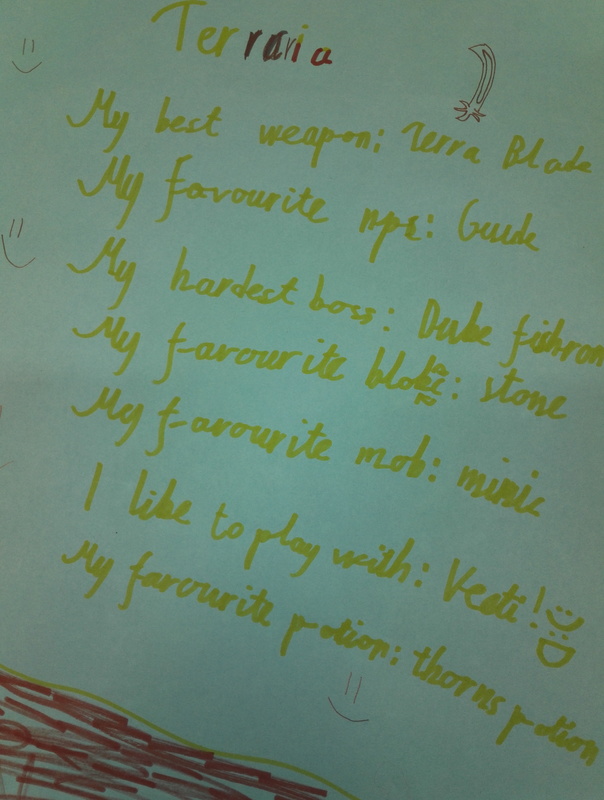 Terraria
My best weapon: Terra Blade
My favourite nps: Guide
My hardest boss: Duke fishron
My favourite bloke: stone
My favourite mob: mimic
I like to play with: Veeti!
My favourite potion: thorns potion